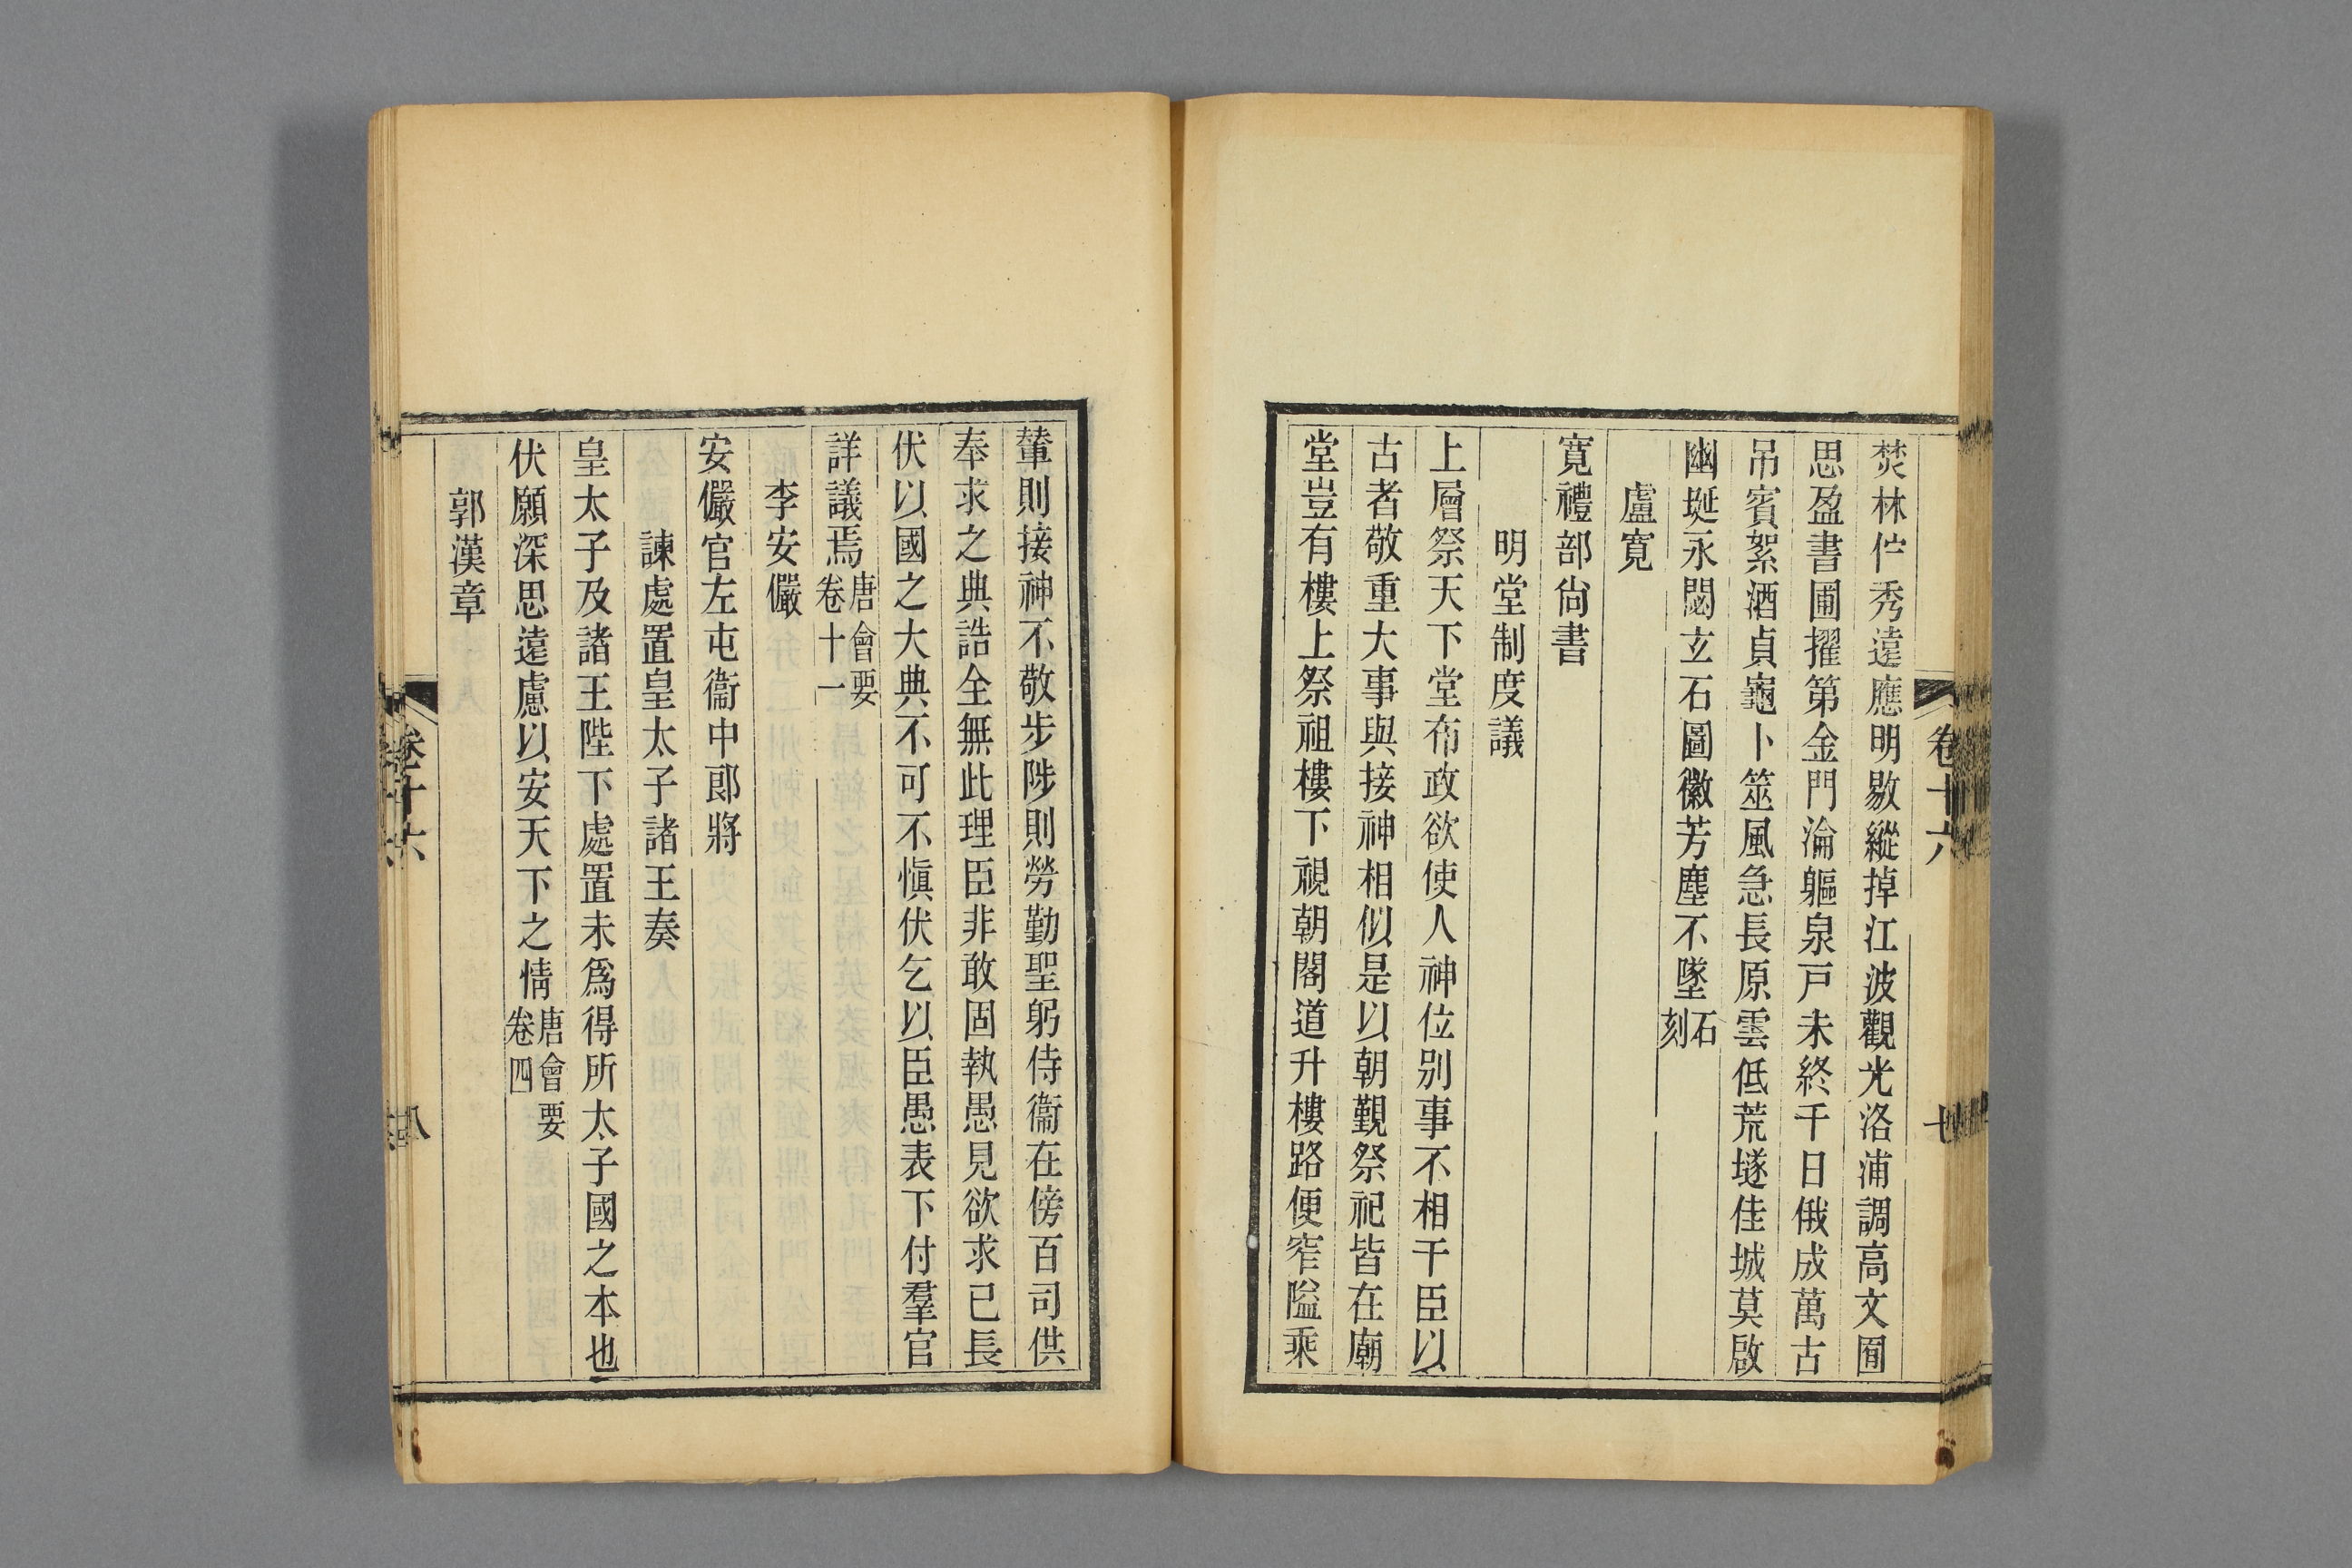 焚林伫秀遠應明敭縱掉江波觀光洛浦調高文囿
思盈書圃擢第金門淪軀泉戸未終千日俄成萬古
吊賓絮酒貞龜卜筮風急長原雲低荒墜佳城莫啟
幽埏永閟玄石圖徽芳塵不墜石刻
盧寛
寛禮部尙書
明堂制度議
上層祭天下堂布政欲使人神位别事不相干臣以
古者敬重大事與接神相似是以朝覲祭祀皆在廟
堂豈有樓上祭祖樓下視朝閣道升樓路便窄隘乘
輦則接神不敬步陟則勞勤聖躬侍衞在傍百司供
奉求之典誥全無此理臣非敢固執愚見欲求已長
伏以國之大典不可不愼伏乞以臣愚表下付羣官
詳議焉唐會要卷十一
李安儼
安儼官左屯衞中郞將
諫處置皇太子諸王奏
皇太子及諸王陛下處置未爲得所太子國之本也
伏願深思遠慮以安天下之情唐會要卷四
郭漢章
卷十六
七
卷十六
八